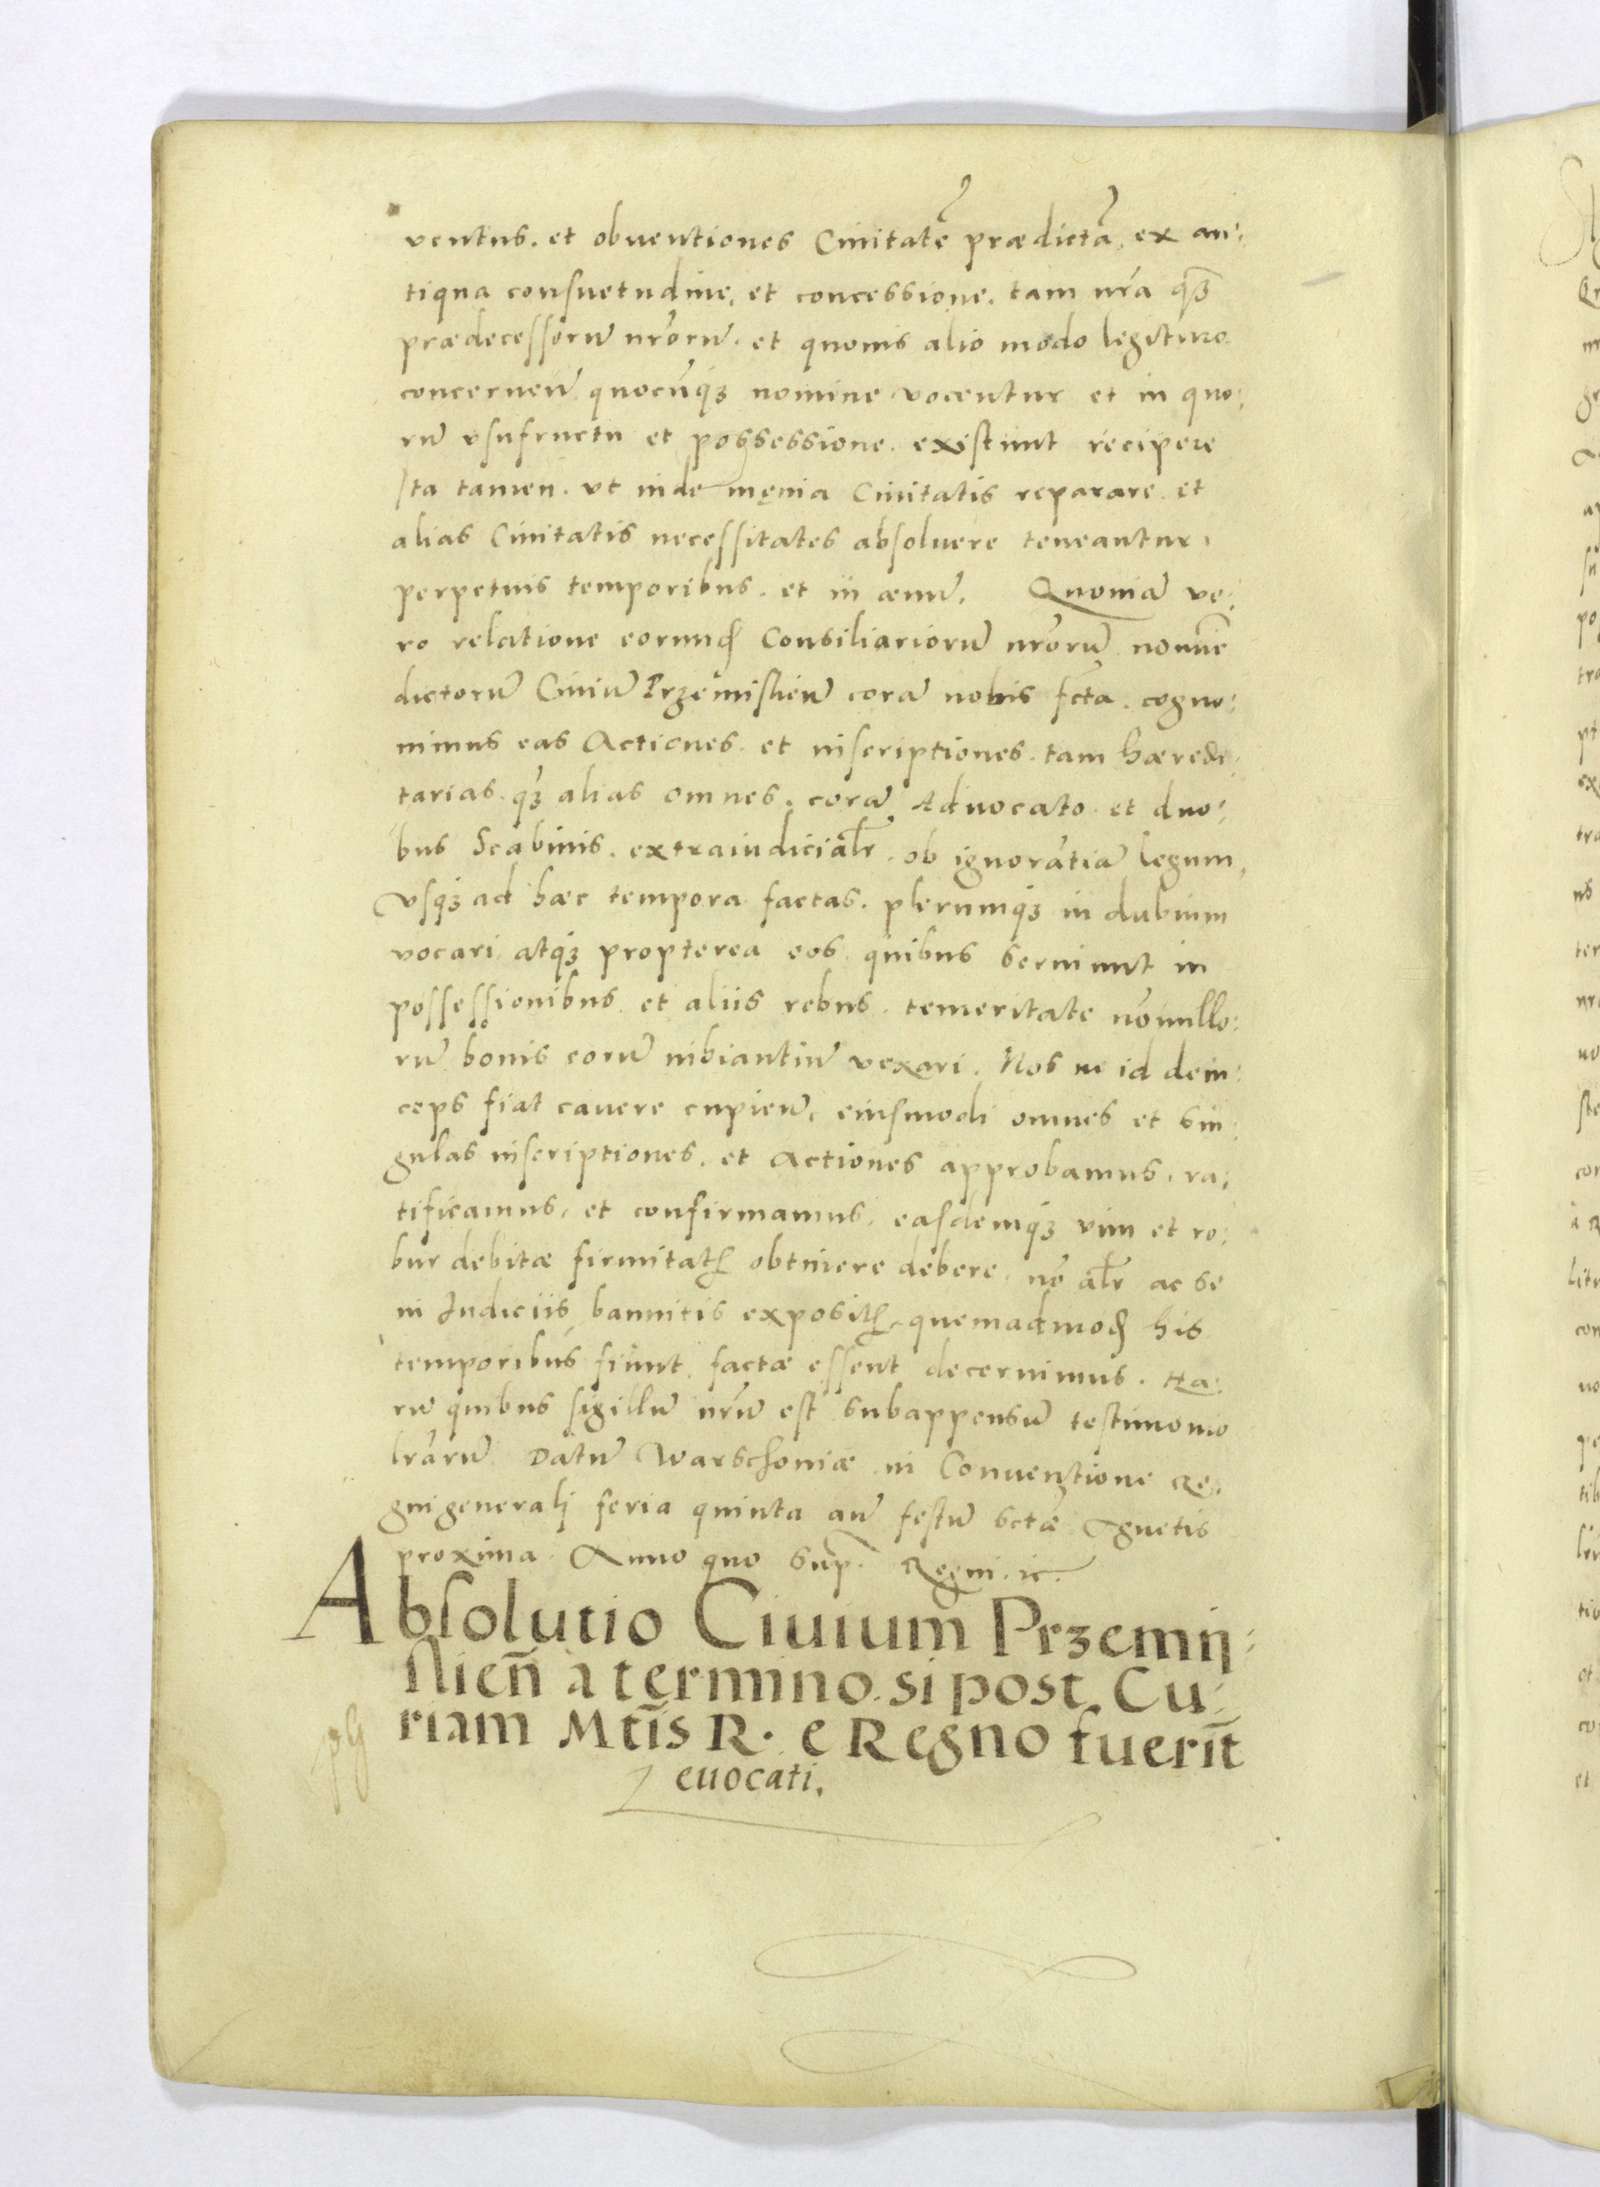 ventus. et obuentiones Ciuitatē prædictā, ex an:
tiqua consuetudine, et concessione. tam nr̄a qꝫ
prædecessorū nr̄orū. et quouis alio modo legitimo
concerneñ quocūqꝫ nomine vocentur et in quo:
rū vsufructu et possessione. existunt recipere
Ita tamen. vt inde męnia Ciuitatis reparare et
alias Ciuitatis necessitates absoluere teneantur,
perpetuis temporibus. et in æuū. Quoniā ve:
ro relatione eorund Consiliariorū nr̄orū nomīe
dictorū Ciuiū Przemislieñ corā nobis fc̄ta. cogno:
uimus eas Actiones. et inscriptiones. tam hæredi:
tarias. qꝫ alias omnes. corā Aduocato et duo:
bus Scabinis. extraiudicialr̄. ob ignorātiā legum,
vsqꝫ ad hæc tempora factas. plerumqꝫ in dubium
vocari atqꝫ propterea eos quibus seruiunt in
possessionibus et aliis rebus. temeritate nōnullo:
rū bonis eorū inhiantiū vexari. Nos ne id dein:
ceps fiat cauere cupieñ, eiusmodi omnes et sin:
gulas inscriptiones. et Actiones approbamus, ra:
tificamus, et confirmamus, easdemqꝫ vim et ro:
bur debitæ firmitatꝭ obtinere debere, nō alr̄ ac se
in Iudiciis bannitis expositꝭ, quemadmod his
temporibus fiunt factæ essent decernimus. Ha:
rū quibus sigillū nr̄ū est subappensū testimonio
lr̄arū. Datū Warschouiæ in Conuentione Re:
gni generalj feria quinta añ festū sctæ Agnetis
proxima. Anno quo sup. Regni. ic.
Absolutio Ciuium Przemij:
slieñ a termino. si post Cu:
riam Mt̄is R. e Regno fuerīt
euocati.